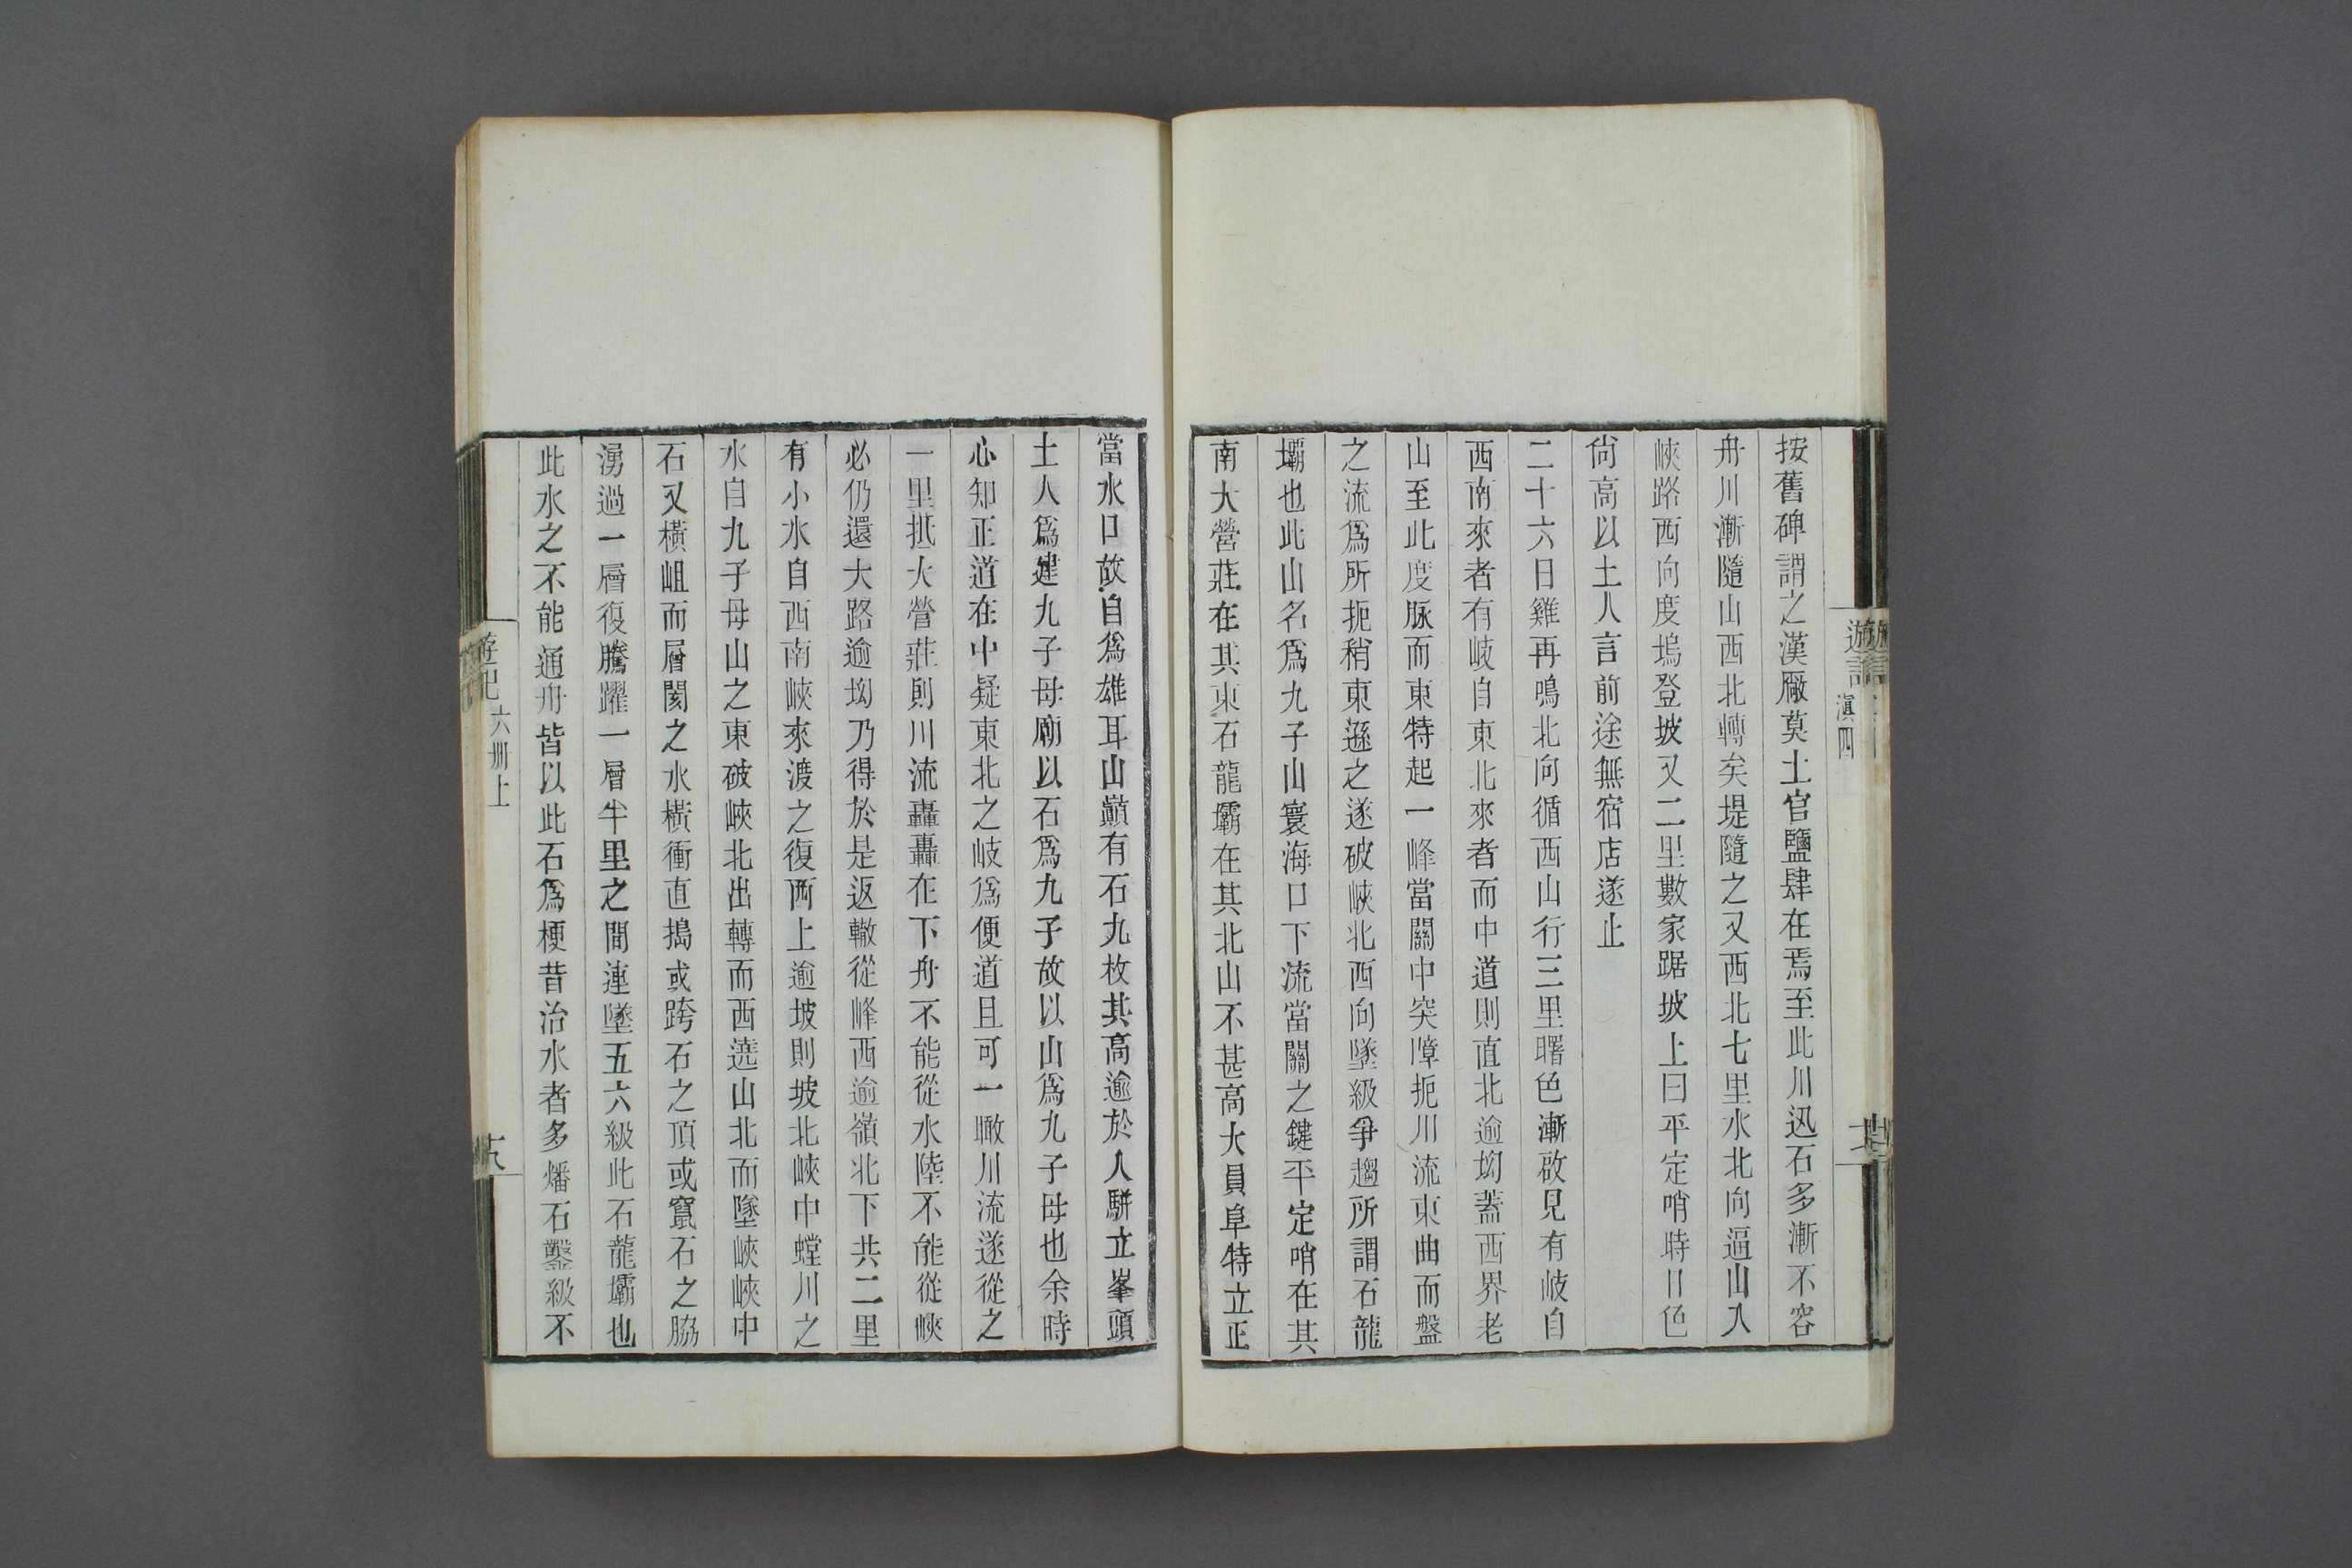 按舊碑謂之漢厰莫土官鹽肆在焉至此川迅石多漸不容
舟川漸隨山西北轉矣堤隨之又西北七里水北向逼山入
峽路西向度塢登坡又二里數家踞坡上曰平定哨時日色
尙高以土人言前途無宿店遂止
二十六日雞再鳴北向循西山行三里曙色漸啟見有岐自
西南來者有岐自東北來者而中道則直北逾坳蓋西界老
山至此度脉而東特起一峰當關中突障扼川流東曲而盤
之流爲所扼稍東遜之遂破峽北西向墜級爭趨所謂石龍
壩也此山名爲九子山寰海口下流當關之鍵平定哨在其
南大營莊在其東石龍壩在其北山不甚高大員阜特立正
當水口故自爲雄耳山巔有石九枚其高逾於人駢立峯頭
土人爲建九子母廟以石爲九子故以山爲九子母也余時
心知正道在中疑東北之岐爲便道且可一瞰川流遂從之
一里抵大營莊則川流轟轟在下舟不能從水陸不能從峽
必仍還大路逾坳乃得於是返轍從峰西逾嶺北下共二里
有小水自西南峽來渡之復西上逾坡則坡北峽中螳川之
水自九子母山之東破峽北出轉而西遶山北而墜峽峽中
石又橫岨而層閡之水橫衝直搗或跨石之頂或竄石之脇
湧過一層復騰躍一層半里之間連墜五六級此石龍壩也
此水之不能通舟皆以此石爲梗昔治水者多燔石鑿級不
遊記 六册上
滇四